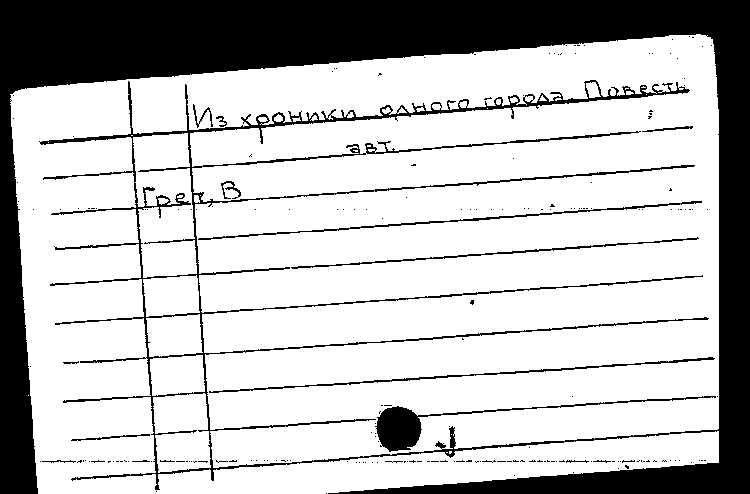 Из хроники одного города. Повесть
авт.
Греч, В